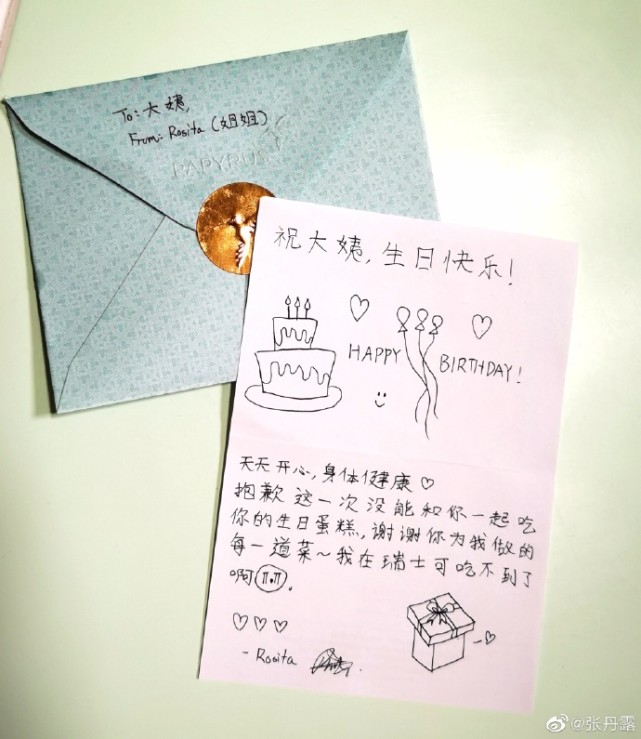 To: 大姨,
From: Rosita (姐姐)
PAPYRUS
祝大姨,生日快乐!
HAPPY BIRTHDAY!
天天开心,身体健康♡
抱歉这一次没能和你一起吃
你的生日蛋糕,谢谢你为我做的
每一道菜~我在瑞士可吃不到了
啊.
- Rosita
@张丹露